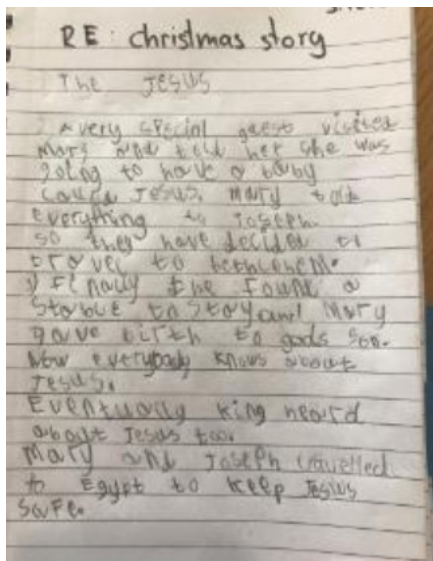 RE: christmas story
The Jesus
a very special guest visited
Mary and told her she was
going to have a baby
Jesus. Mary told
everything to Joseph.
so they have decided to
travel to
finally the found a
stable to stay and Mary
gave birth to gods son.
Now everybody knows about
Jesus.
Eventually king heard
about Jesus too.
Mary and Joseph travelled
to Egypt to keep Jesus
safe.